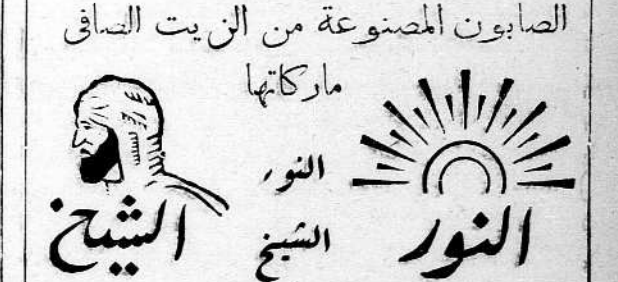 الصابون المصنوعة من الزيت الصافى
ماركاتها
النور
الشيخ
النور
الشيخ